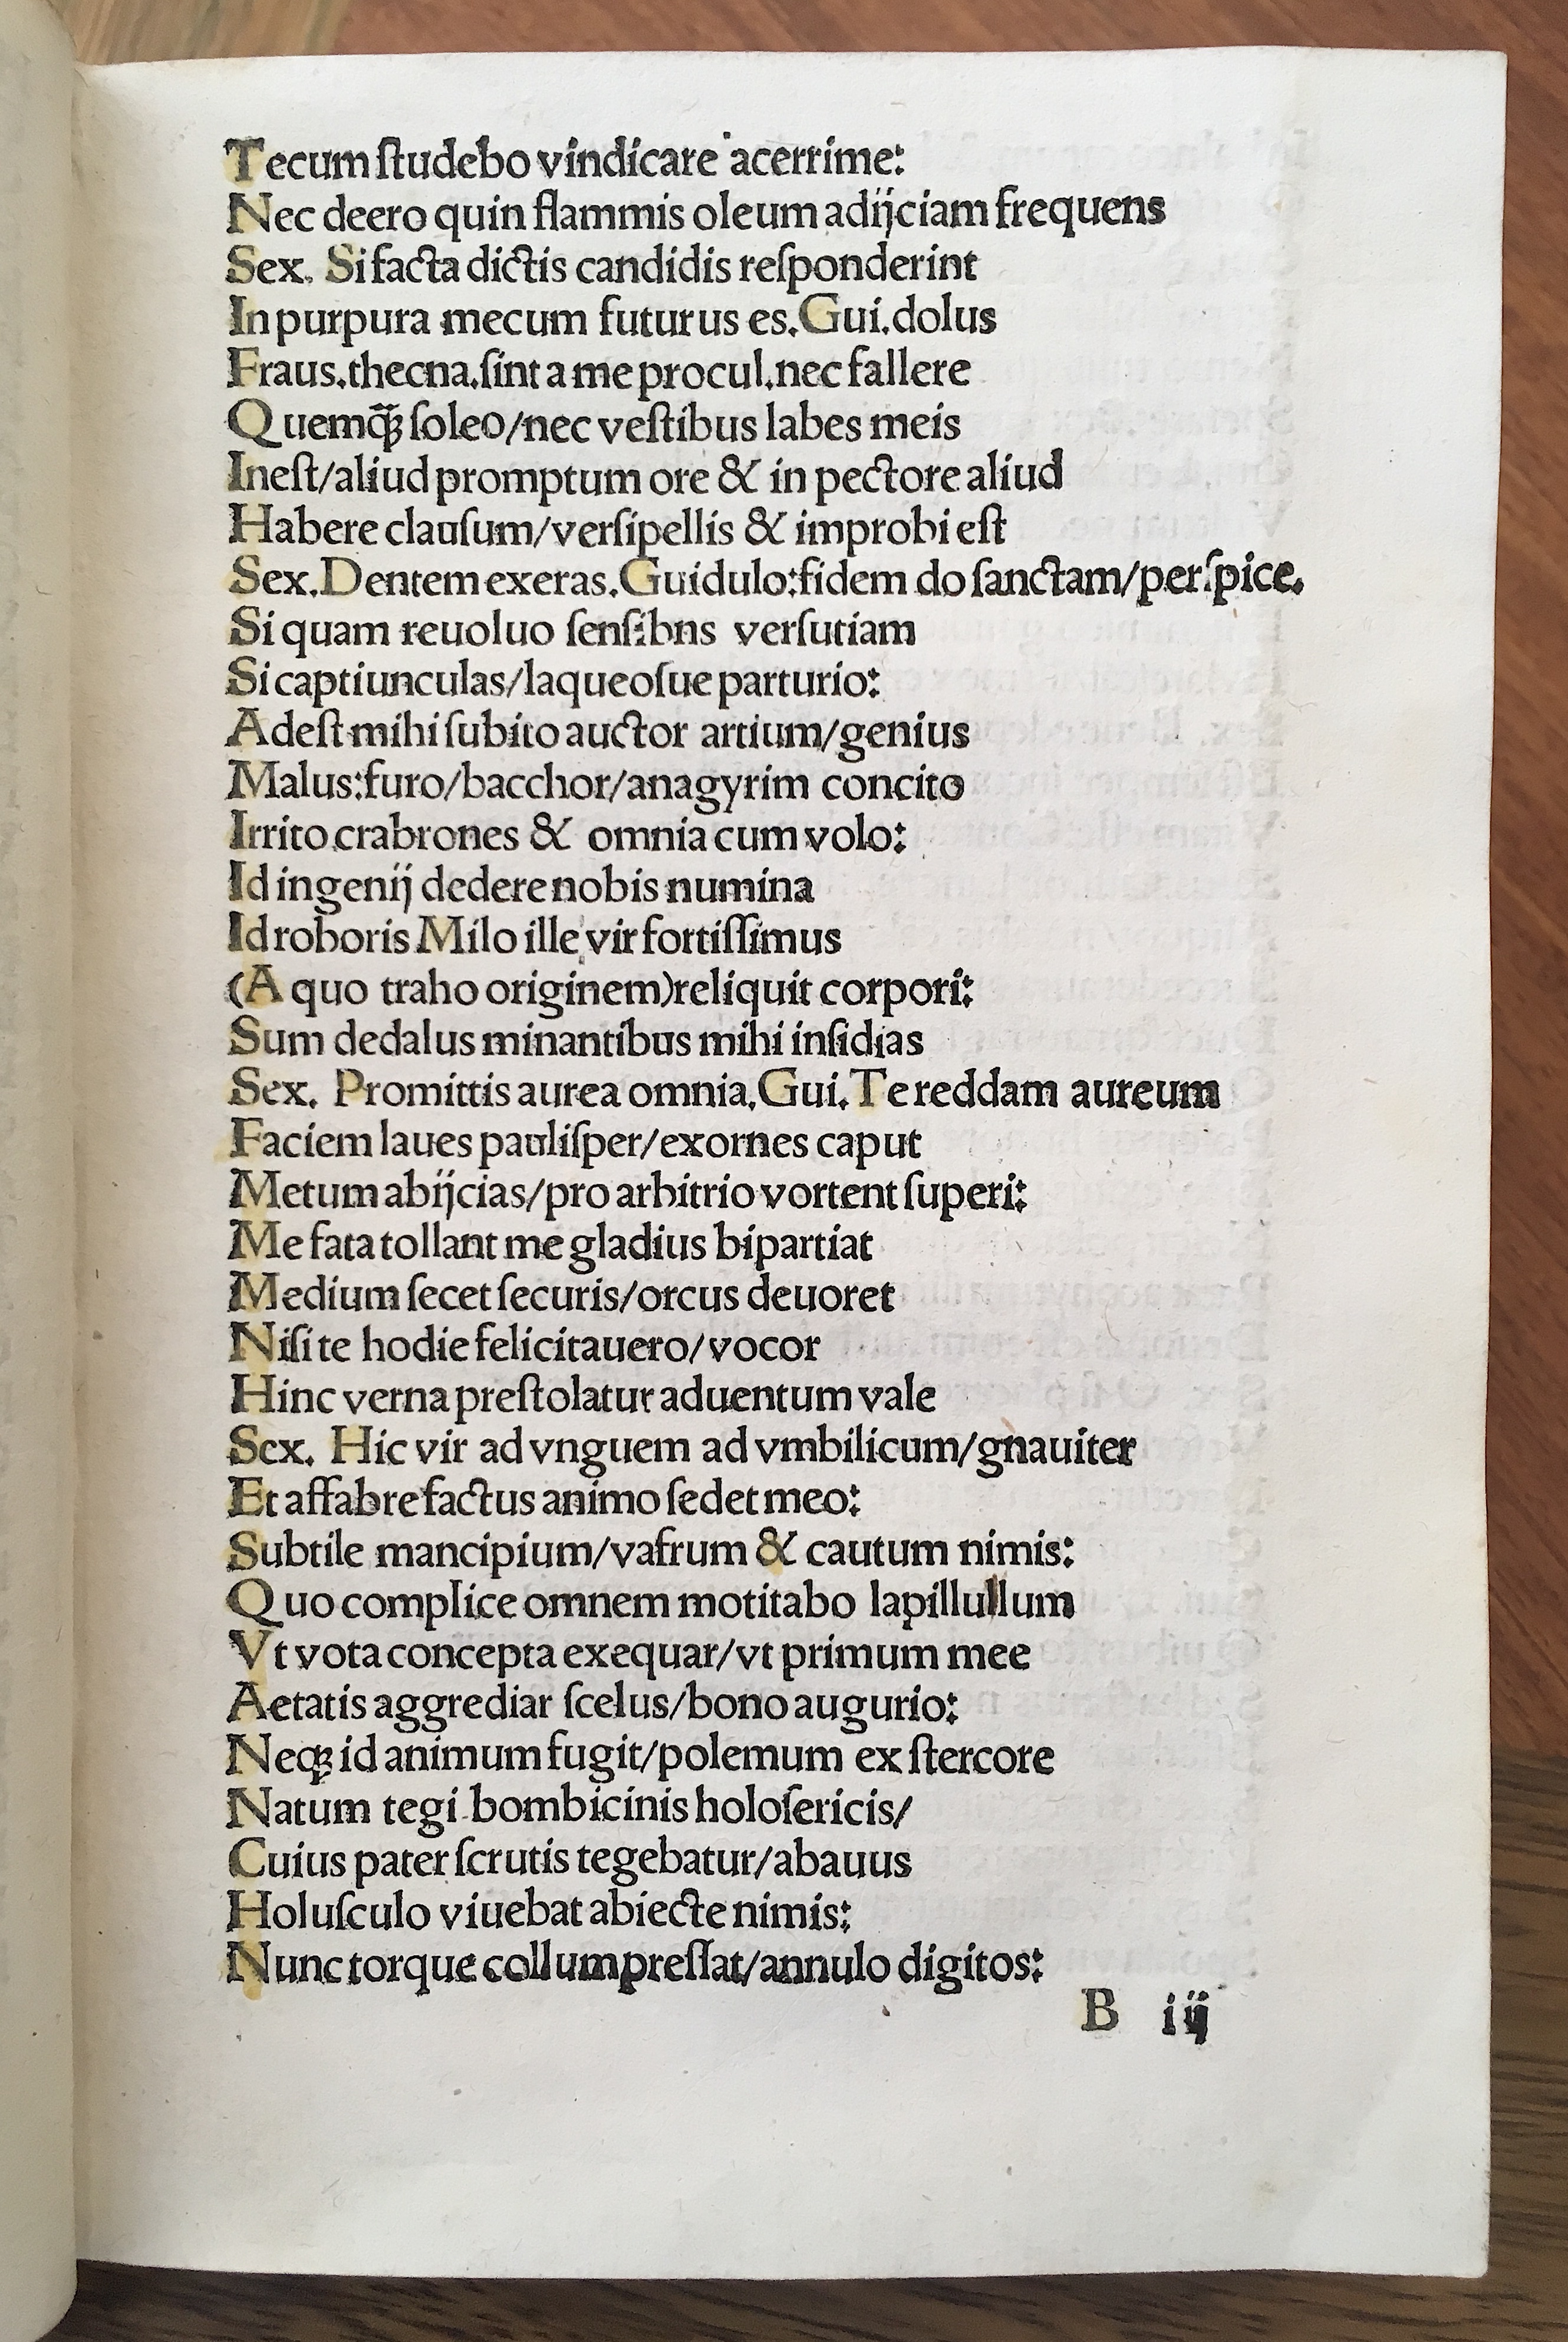 Tecum ſtudebo vindicare acerrime:
Nec deero quin flammis oleum adijciam frequens
Sex. Si facta dictis candidis reſponderint
In purpura mecum futurus es. Gui. dolus
Fraus. thecna. ſint a me procul. nec fallere
Quemq̃ꝫ ſoleo/nec veſtibus labes meis
Ineſt/aliud promptum ore & in pectore aliud
Habere clauſum/verſipellis & improbi eſt
Sex. Dentem exeras. Guidulo: fidem do ſanctam/perſpice.
Si quam reuoluo ſenſibns verſutiam
Si captiunculas/laqueoſue parturio:
Adeſt mihi ſubito auctor artium/genius
Malus: furo/bacchor/anagyrim concito
Irrito crabrones & omnia cum volo:
Id ingenij dedere nobis numina
Id roboris Milo ille vir fortiſſimus
(A quo traho originem) reliquit corpori:
Sum dedalus minantibus mihi inſidias
Sex. Promittis aurea omnia. Gui. Te reddam aureum
Faciem laues pauliſper/exornes caput
Metum abijcias/pro arbitrio vortent ſuperi:
Me fata tollant me gladius bipartiat
Medium ſecet ſecuris/orcus deuoret
Niſi te hodie felicitauero/vocor
Hinc verna preſtolatur aduentum vale
Sex. Hic vir ad vnguem ad vmbilicum/gnauiter
Et affabre factus animo ſedet meo:
Subtile mancipium/vafrum & cautum nimis:
Quo complice omnem motitabo lapillullum
Vt vota concepta exequar/vt primum mee
Aetatis aggrediar ſcelus/bono augurio:
Neqꝫ id animum fugit/polemum ex ſtercore
Natum tegi bombicinis holoſericis/
Cuius pater ſcrutis tegebatur/abauus
Holuſculo viuebat abiecte nimis:
Nunc torque collum preſſat/annulo digitos:
B iij